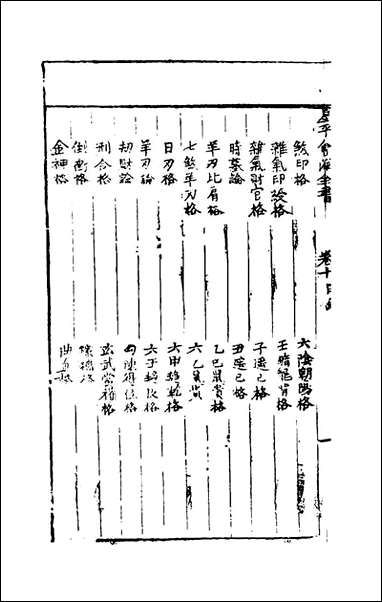 子平會海全書 卷十目錄
煞印格
雜氣印綬格
雜氣財官格
時墓論
羊刃比肩格
七煞羊刃格
日刃格
羊刃論
劫財論
刑合格
倒冲格
金神格
六陰朝陽格
壬騎龍背格
子遙巳格
丑遙巳格
乙巳鼠貴格
六乙鼠貴
六甲趨乾格
六壬趨艮格
勾陳得位格
玄武當權格
稼穡格
曲直格